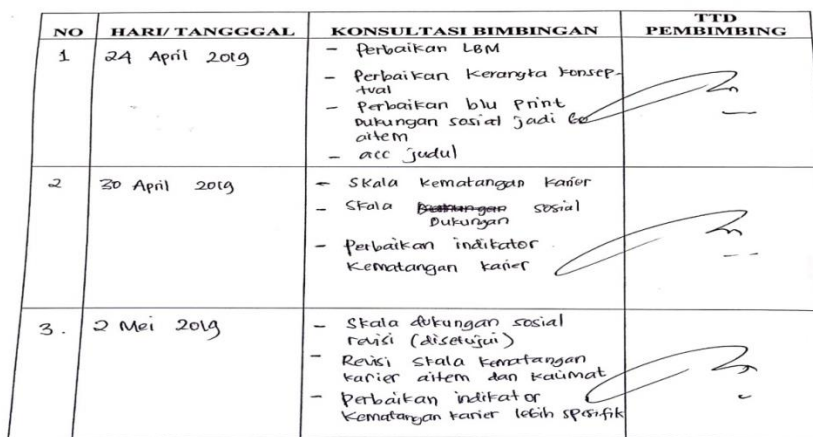 NO HARI/ TANGGGAL KONSULTASI BIMBINGAN TTD PEMBIMBING
1 24 April 2019 - Perbaikan LBM
- Perbaikan Kerangka Konsep-
tual
- Perbaikan blu print
Dukungan sosial jadi 60
aitem
- acc judul
2 30 April 2019 - Skala Kematangan Karier
- Skala sosial
Dukungan
- Perbaikan indikator
Kematangan karier
3. 2 Mei 2019 - Skala dukungan sosial
revisi (disetujui)
- Revisi Skala Kematangan
karier aitem dan kalimat
- Perbaikan indikator
Kematangan karier lebih spesifik